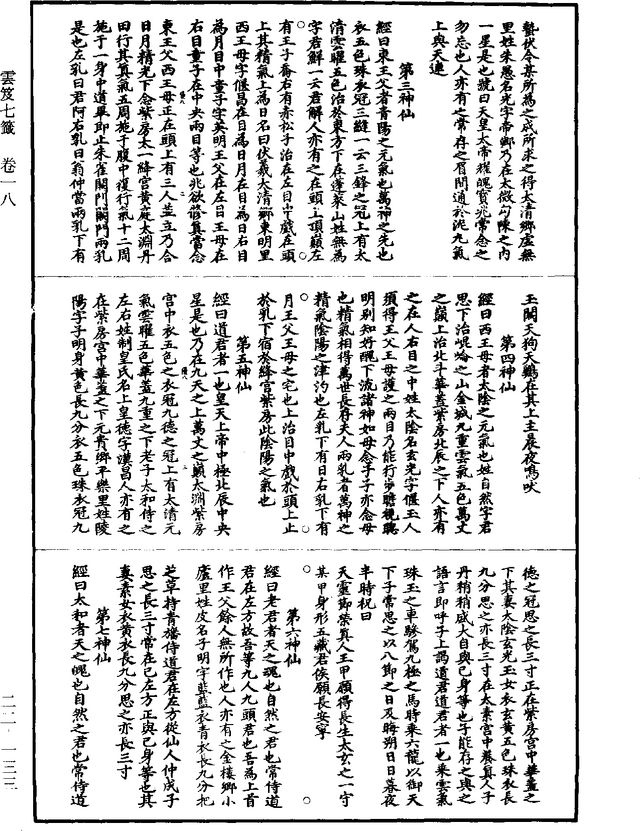 蟄伏令某所為之成所求之得太清鄉虛無
里姓朱愚名光字帝鄉乃在太微勾陳之內
一星是也號曰天皇太帝耀魄寶兆常念之
勿忘也人亦有之常存之眉間通於泥丸氣
上與天連
第三神仙
經曰東王父者青陽之元氣也萬神之先也
衣五色珠衣冠三縫一云三鋒之冠上有太
清雲曜五色治於東方下在蓬萊山姓無為
字君鮮一云君解人亦有之在頭上頂巔左
有王子喬右有赤松子治在左目中戲在頭
上其精氣上為日名曰伏羲太清鄉東明里
西王母字偃昌在目為日月左目為日右目
為月目中童子字英明王父在左目王母在
右目童子在中央兩目等也兆欲修真當念
東王父西王母正在頭上有三人並立乃合
日月精光下念紫房太一絳宮黃庭太淵丹
田行其真氣五周施于腹中復行氣十二周
施于一身中道畢即止朱雀闕門闕門兩乳
是也左乳曰君阿右乳曰翁仲當兩乳下有
玉闕天狗天雞在其上主晨夜鳴吠
第四神仙
經曰西王母者太陰之元氣也姓自然字君
思下治崑崙之山金城九重雲氣五色萬丈
之巔上治北斗華蓋紫房北辰之下人亦有
之在人右目之中姓太陰名玄光字偃玉人
須得王父王母護之兩目乃能行步瞻視聰
明別知好醜下流諸神如母念子子亦念母
也精氣相得萬世長存夫人兩乳者萬神之
精氣陰陽之津汋也左乳下有日右乳下有
月王父王母之宅也上治目中戲於頭上止
於乳下宿於絳宮紫房此陰陽之氣也
第五神仙
經曰道君者一也皇天上帝中極北辰中央
星是也乃在九天之上萬丈之巔太淵紫房
宮中衣五色之衣冠九德之冠上有太清元
氣雲曜五色華蓋九重之下老子太和侍之
左右姓制皇氏名上皇德字漢昌人亦有之
在紫房宮中華蓋之下元貴鄉平樂里姓陵
陽字子明身黃色長九分衣五色珠衣冠九
德之冠思之長三寸正在紫房宮中華蓋之
下其妻太陰玄光玉女衣玄黃五色珠衣長
九分思之亦長三寸在太素宮中養真人子
丹稍稍盛大自與己身等也子能存之與之
語言即呼子上謁道君道君者一也乘雲氣
珠玉之車驂駕九極之馬時乘六龍以御天
下子常思之以八節之日及晦朔日日暮夜
半時祝曰
天靈節榮真人王甲願得長生太玄之一守
某甲身形五藏君侯願長安寧
第六神仙
經曰老君者天之魂也自然之君也常侍道
君在左方故吾等九人九頭君也吾為上首
作王父餘人無所作也人亦有之金樓鄉小
廬里姓皮名子明字藍藍衣青衣長九分把
芝草持青旛侍道君在左方從仙人仲成子
思之長三寸常在己左方正與己身等也其
妻素女衣黃衣長九分思之亦長三寸
第七神仙
經曰太和者天之魄也自然之君也常侍道
雲笈七籤 卷一八
二二-一三三